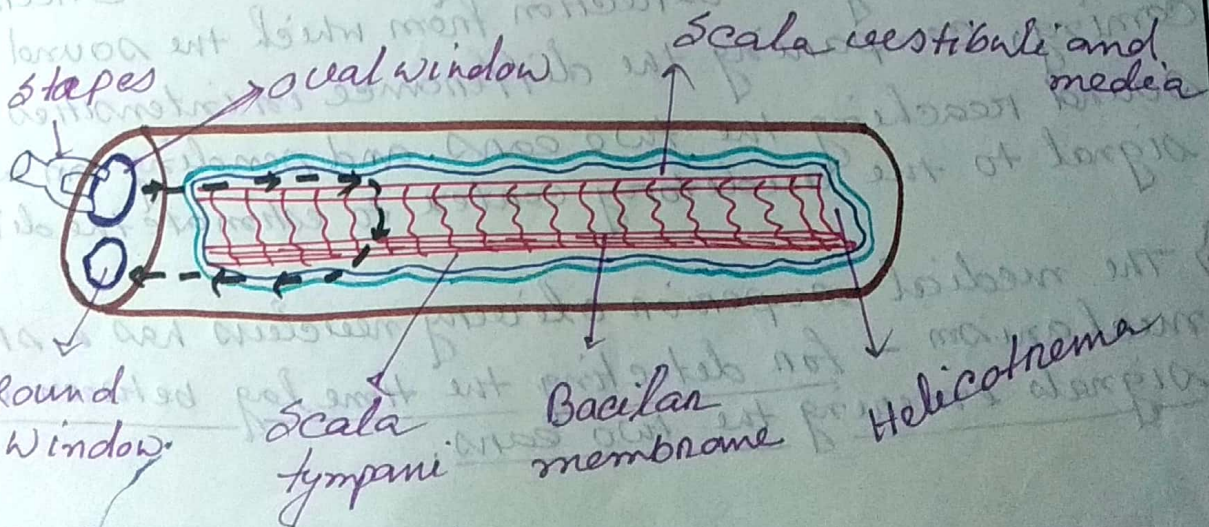 Stapes
oval window
Scala vestibuli and
media
Round
window.
Scala
tympani
Bacilan
membrane
Helicotrema